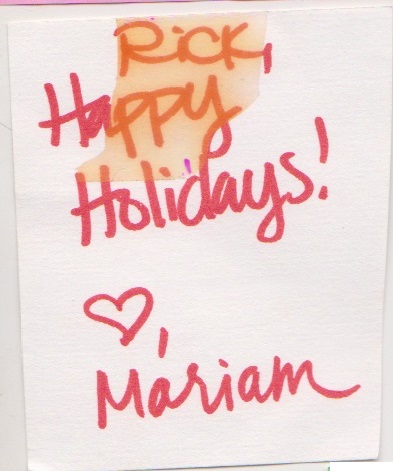 Rick,
Happy
Holidays!
♡,
Mariam